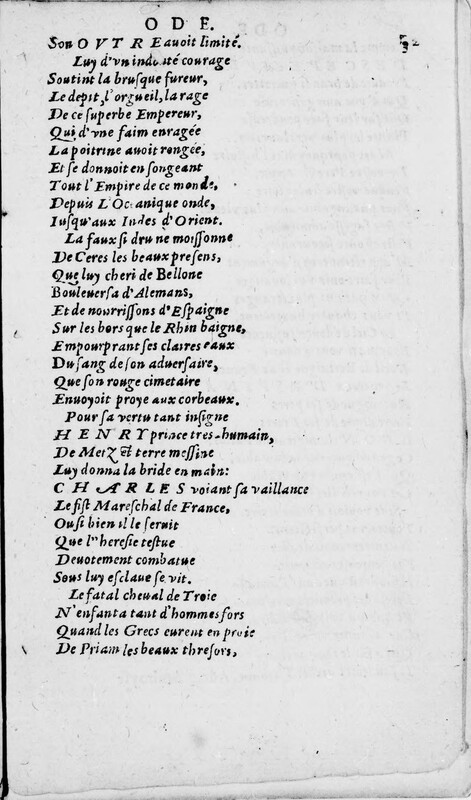 ODE.
52
Son OVTRE auoit limité.
Luy d'vn indonté courage
Soutint la brusque fureur,
Le depit, l'orgueil, la rage
De ce superbe Empereur,
Qui d'vne faim enragée
La poitrine auoit rongée,
Et se donnoit en songeant
Tout l'Empire de ce monde,
Depuis L'Oceanique onde,
Iusqu'aux Indes d'Orient.
La faux si dru ne moissonne
De Ceres les beaux presens,
Que luy cheri de Bellone
Bouleuersa d'Alemans,
Et de nourrissons d'Espaigne
Sur les bors que le Rhin baigne,
Empourprant ses claires eaux
Du sang de son aduersaire,
Que son rouge cimetaire
Enuoyoit proye aux corbeaux.
Pour sa vertu tant insigne
HENRY prince tres-humain,
De Metz & terre messine
Luy donna la bride en main:
CHARLES voiant sa vaillance
Le fist Mareschal de France,
Ou si bien il le seruit
Que l'heresie testue
Deuotement combatue
Sous luy esclaue se vit.
Le fatal cheual de Troie
N'enfanta tant d'hommes fors
Quand les Grecs eurent en proie
De Priam les beaux thresors,